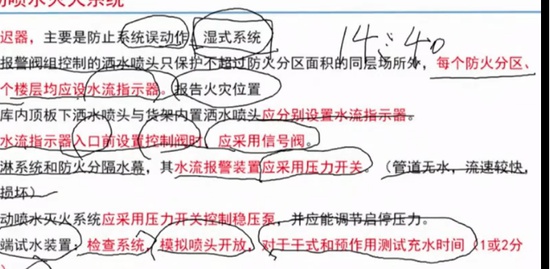 动喷水灭火系统
迟器，主要是防止系统误动作。湿式系统
14:40
报警阀组控制的洒水喷头只保护不超过防火分区面积的同层场所外，每个防火分区、
个楼层均应设水流指示器。报告火灾位置
库内顶板下洒水喷头与货架内置洒水喷头应分别设置水流指示器。
水流指示器入口前设置控制阀时，应采用信号阀。
淋系统和防火分隔水幕，其水流报警装置应采用压力开关。（管道无水，流速较快，
损坏）
动喷水灭火系统应采用压力开关控制稳压泵，并应能调节启停压力。
端试水装置：检查系统，模拟喷头开放，对于干式和预作用测试充水时间（1或2分